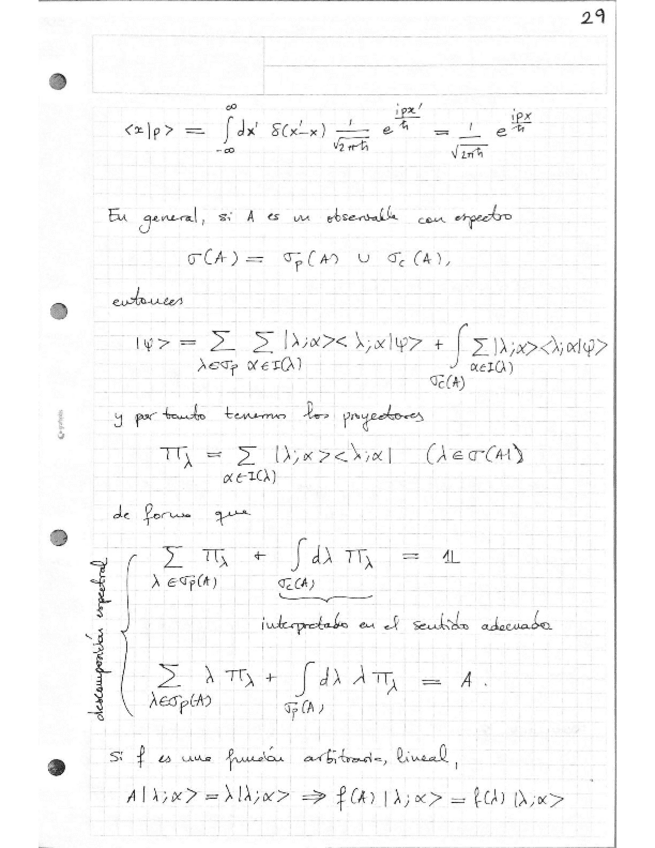 29
<x|p> = ∫_{-∞}^{∞} dx' δ(x'-x) 1/√(2πħ) e^{ipx'/ħ} = 1/√(2πħ) e^{ipx/ħ}
En general, si A es un observable con espectro
σ(A) = σ_p(A) ∪ σ_c(A),
entonces
|φ> = Σ_{λ∈σ_p} Σ_{α∈I(λ)} |λ;α><λ;α|φ> + ∫_{σ_c(A)} Σ_{α∈I(λ)} |λ;α><λ;α|φ>
y por tanto tenemos los proyectores
Π_λ = Σ_{α∈I(λ)} |λ;α><λ;α| (λ∈σ(A))
de forma que
descomposición espectral
Σ_{λ∈σ_p(A)} Π_λ + ∫_{σ_c(A)} dλ Π_λ = 1L
interpretado en el sentido adecuado
Σ_{λ∈σ_p(A)} λ Π_λ + ∫_{σ_p(A)} dλ λ Π_λ = A.
Si f es una función arbitraria, lineal,
A|λ;α> = λ|λ;α> ⇒ f(A)|λ;α> = f(λ)|λ;α>